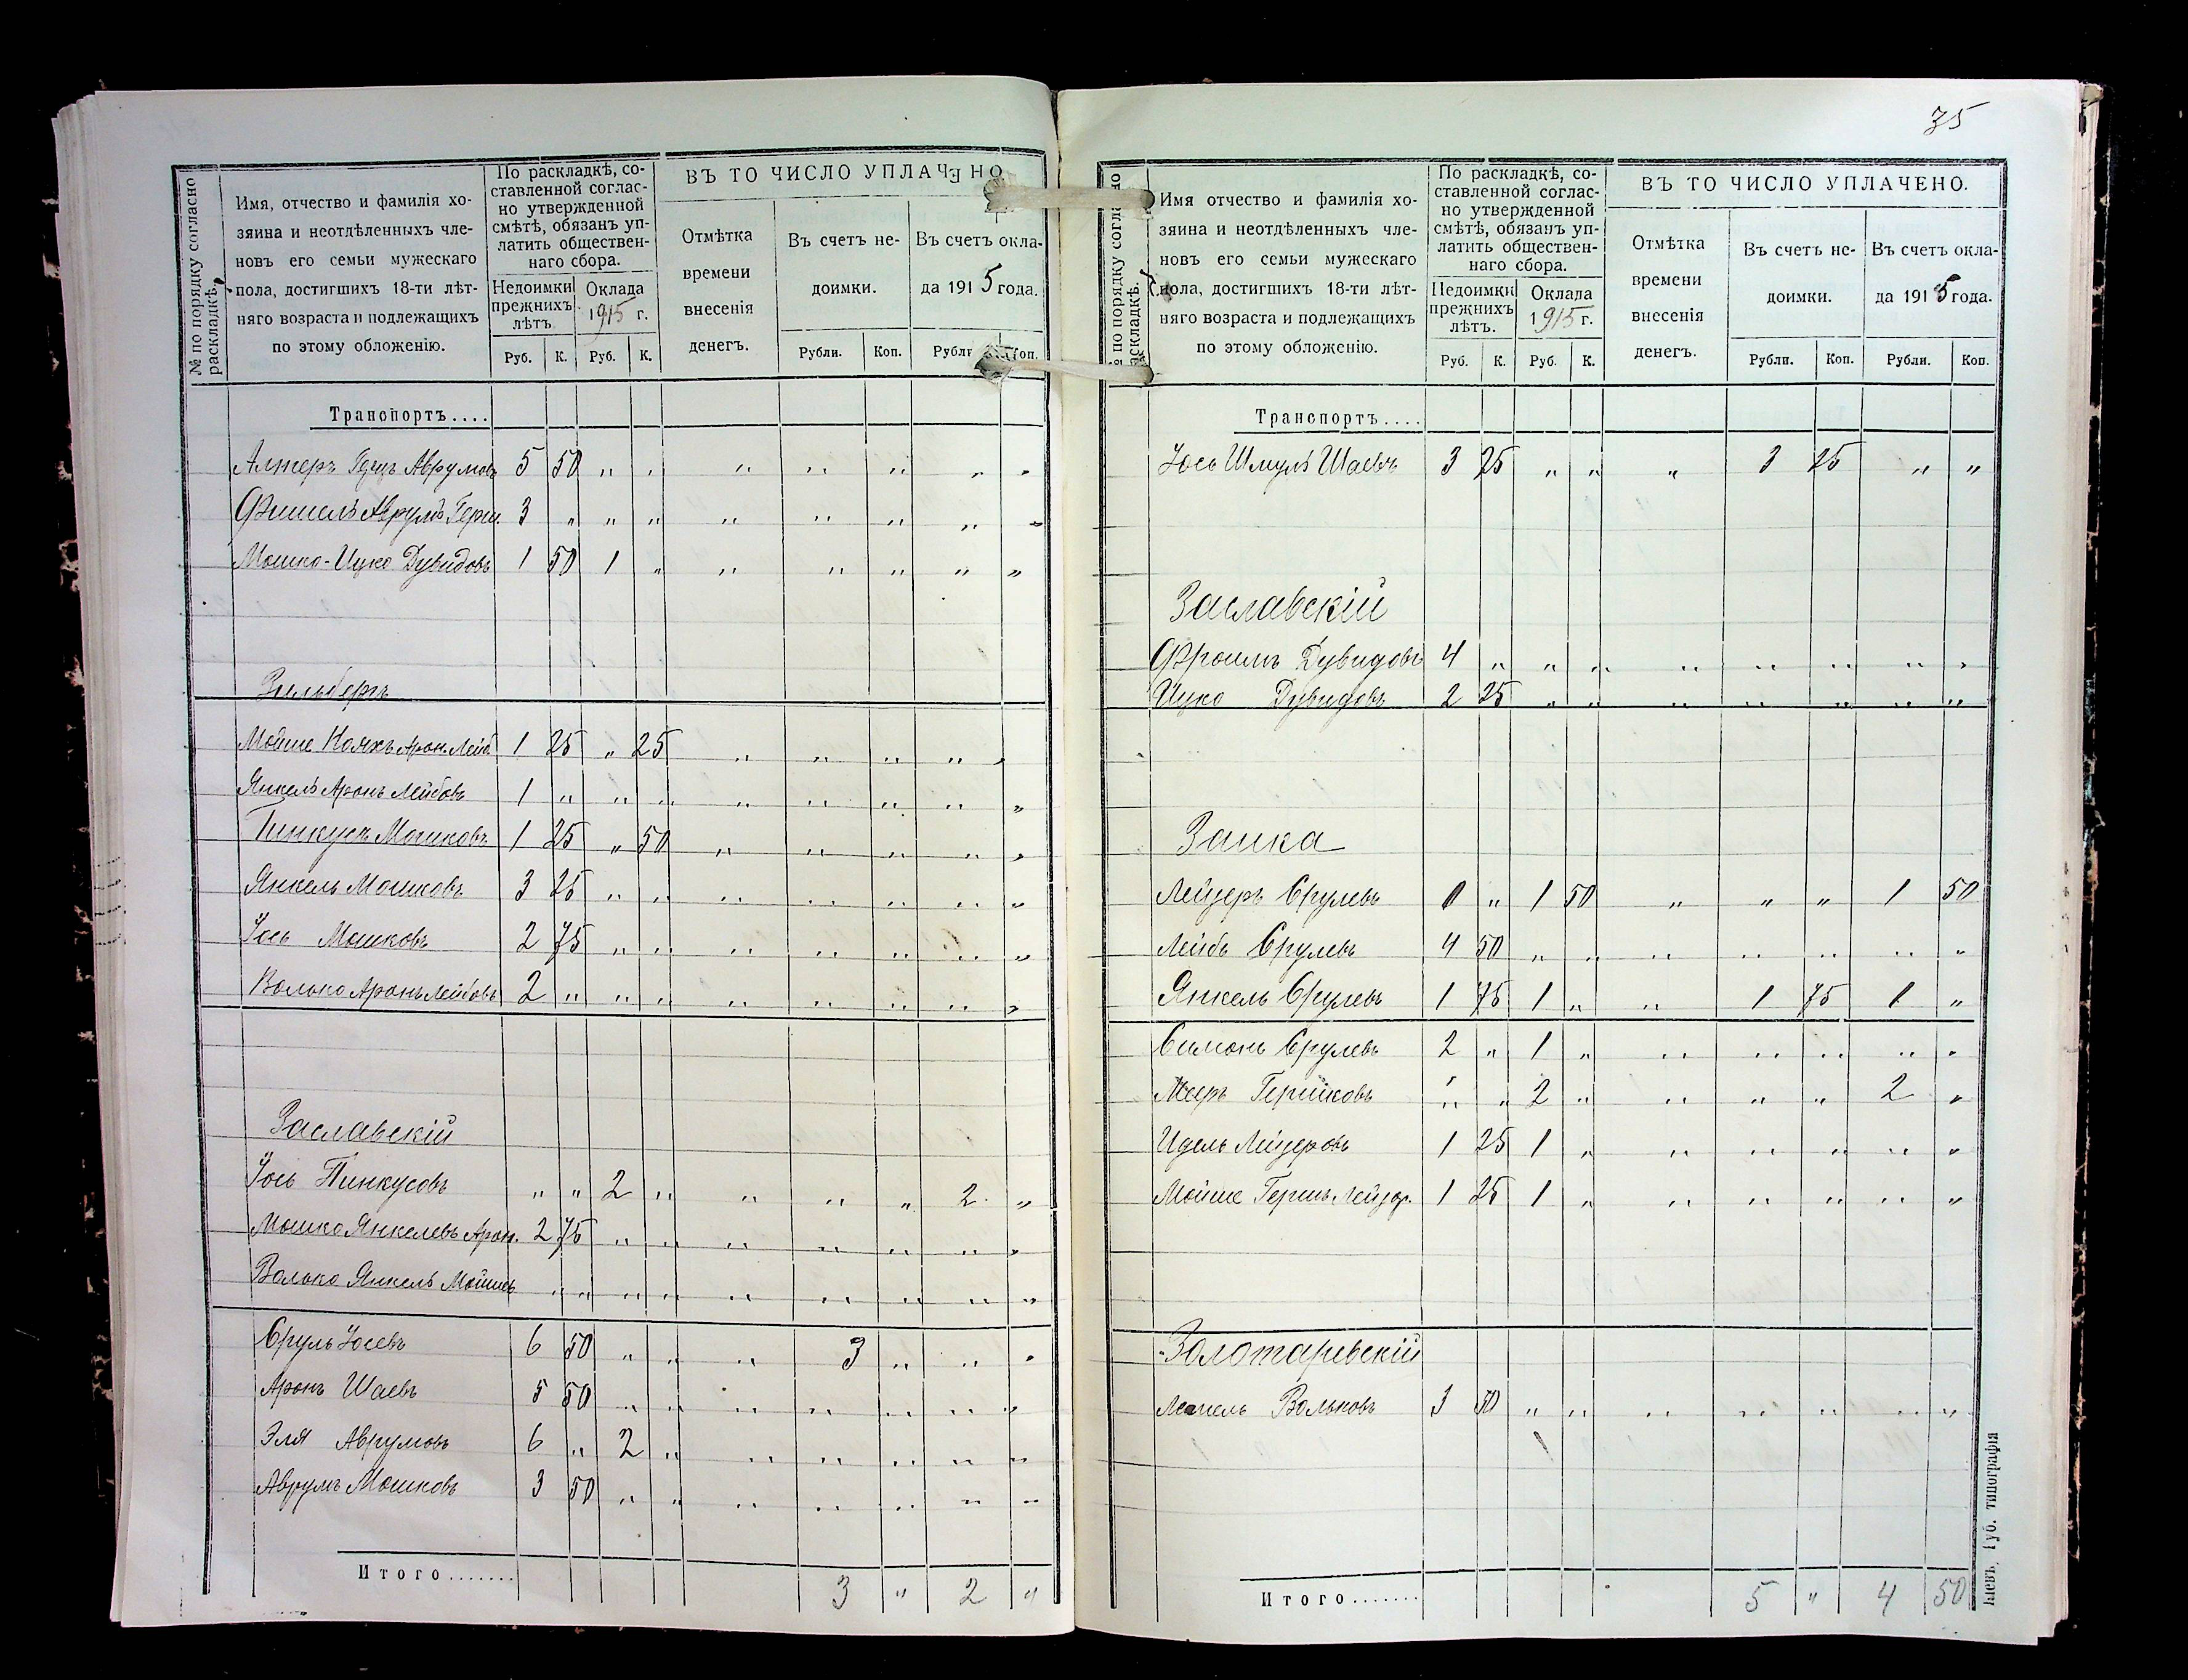 № по порядку согласно раскладкѣ.
Имя, отчество и фамилія хо-
зяина и неотдѣленныхъ чле-
новъ его семьи мужескаго
пола, достигшихъ 18-ти лѣт-
няго возраста и подлежащихъ
по этому обложенію.
По раскладкѣ, со-
ставленной соглас-
но утвержденной
смѣтѣ, обязанъ уп-
латить обществен-
наго сбора.
Недоимки
прежнихъ
лѣтъ.
Оклада
1915 г.
Руб. К. Руб. К.
ВЪ ТО ЧИСЛО УПЛАЧЕНО
Отмѣтка
времени
внесенія
денегъ.
Въ счетъ не-
доимки.
Въ счетъ окла-
да 1915 года.
Рубли. Коп. Рубли Коп.
Транспортъ....
Аврумовъ 5 50 „ „ „ „ „ „ „
Фишель Аврумъ Герш. 3 „ „ „ „ „ „ „ „
Мошко-Ицко Дувидовъ 1 50 1 „ „ „ „ „ „
Зильбергъ
Мойше Арон. Лейб. 1 25 „ 25 „ „ „ „ „
Янкель Аронъ Лейбовъ 1 „ „ „ „ „ „ „ „
Пинкусъ Мошковъ 1 25 „ 50 „ „ „ „ „
Янкель Мошковъ 3 25 „ „ „ „ „ „ „
Іось Мошковъ 2 75 „ „ „ „ „ „ „
Волько Аронъ Лейбовъ 2 „ „ „ „ „ „ „ „
Заславскій
Іось Пинкусовъ „ „ 2 „ „ „ „ 2 „
Мошко Янкелевъ Арон. 2 75 „ „ „ „ „ „ „
Волько Янкель Мойшев „ „ „ „ „ „ „ „ „
Сруль Іосевъ 6 50 „ „ „ 3 „ „ „
Аронъ Шаевъ 5 50 „ „ „ „ „ „ „
Эля Аврумовъ 6 „ 2 „ „ „ „ „ „
Аврумъ Мошковъ 3 50 „ „ „ „ „ „ „
Итого....... 3 „ 2 „
35
№ по порядку согласно раскладкѣ.
Имя отчество и фамилія хо-
зяина и неотдѣленныхъ чле-
новъ его семьи мужескаго
пола, достигшихъ 18-ти лѣт-
няго возраста и подлежащихъ
по этому обложенію.
По раскладкѣ, со-
ставленной соглас-
но утвержденной
смѣтѣ, обязанъ уп-
латить обществен-
наго сбора.
Недоимки
прежнихъ
лѣтъ.
Оклада
1915 г.
Руб. К. Руб. К.
ВЪ ТО ЧИСЛО УПЛАЧЕНО.
Отмѣтка
времени
внесенія
денегъ.
Въ счетъ не-
доимки.
Въ счетъ окла-
да 1915 года.
Рубли. Коп. Рубли. Коп.
Транспортъ....
Іось Шмуль Шаевъ 3 25 „ „ „ 3 25 „ „
Заславскій
Фроимъ Дувидовъ 4 „ „ „ „ „ „ „ „
Ицко Дувидовъ 2 25 „ „ „ „ „ „ „
Заика
Лейзеръ Срулевъ „ 1 50 „ „ „ 1 50
Лейбъ Срулевъ 4 50 „ „ „ „ „ „ „
Янкель Срулевъ 1 75 1 „ „ 1 75 1 „
Симонъ Срулевъ 2 „ 1 „ „ „ „ „ „
Мееръ Гершковъ „ „ 2 „ „ „ „ 2 „
Идель Лейзеровъ 1 25 1 „ „ „ „ „ „
Мойше Гершъ Лейзер. 1 25 1 „ „ „ „ „ „
Золотаревскій
Лемель Вольковъ 3 50 „ „ „ „ „ „ „
Итого....... 5 „ 4 50
Кіевъ, Губ. типографія